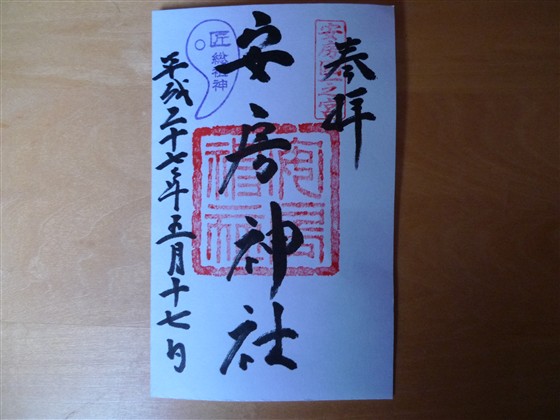 奉拝
安房国一之宮
安房神社
匠総祖神
平成二十七年五月十七日